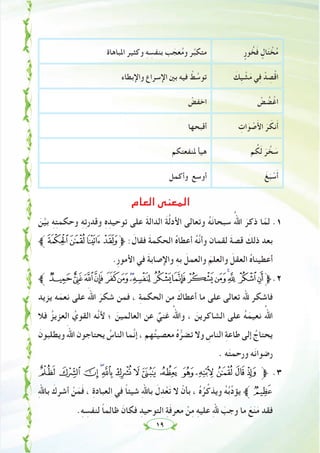 مُخْتالٍ فَخُورٍ متكبّر ومُعجَب بنفسه وكثير المباهاة
اقْصدْ في مَشْيكَ توسّطْ فيه بين الإسراع والإبطاء
اغْضُضْ اخفضْ
أنكرَ الأصْوَاتِ أقبحها
سَخّرَ لكُم هيأ لمنفعتكم
أَسْبَغَ أوسع وأكمل
المعنى العام
١. لمّا ذكرَ اللهُ سبحانَهُ وتعالى الأدلّةَ الدالةَ على توحيدِه وقدرتِهِ وحكمتِهِ بيَّن
بعد ذلك قصةَ لقمان وأنّهُ أعطاهُ الحكمةَ فقال: ﴿ وَلَقَدْ ءَاتَيْنَا لُقْمَٰنَ ٱلْحِكْمَةَ ﴾
أعطيناهُ العقلَ والعلمَ والعملَ به والإصابةَ في الأمورِ.
٢. ﴿ أَنِ ٱشْكُرْ لِلَّهِ وَمَن يَشْكُرْ فَإِنَّمَا يَشْكُرُ لِنَفْسِهِۦ وَمَن كَفَرَ فَإِنَّ ٱللَّهَ غَنِىٌّ حَمِيدٌ ﴾
فاشكر لله تعالى على ما أعطاكَ من الحكمة ، فمن شكر الله على نعمه يزيد
الله نعيمَهُ على الشاكرين ، واللهُ غنيّ عن العالمين ، لأنّه القويُّ العزيزُ فلا
يحتاجُ إلى طاعة الناس ولا تضُرّه معصيتُهم ، إنّما الناسُ يحتاجون الله ويطلبونَ
رضوانَه ورحمته .
٣. ﴿ وَإِذْ قَالَ لُقْمَٰنُ لِٱبْنِهِۦ وَهُوَ يَعِظُهُۥ يَٰبُنَىَّ لَا تُشْرِكْ بِٱللَّهِ إِنَّ ٱلشِّرْكَ لَظُلْمٌ
عَظِيمٌ ﴾ يُؤدّبُهُ ويذكّرُهُ ، بأنْ لا تعْدلَ بالله شيئاً في العبادة ، فَمَنْ أشرك بالله
فقد مَنَعَ ما وجبَ للهِ عليهِ منْ معرفةِ التوحيد فكان ظالماً لنفسِهِ.
١٩